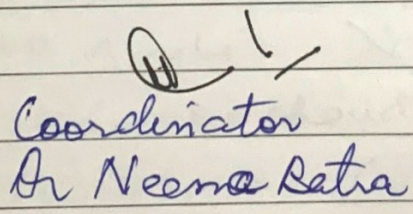 Coordinator
Dr Neena Batra